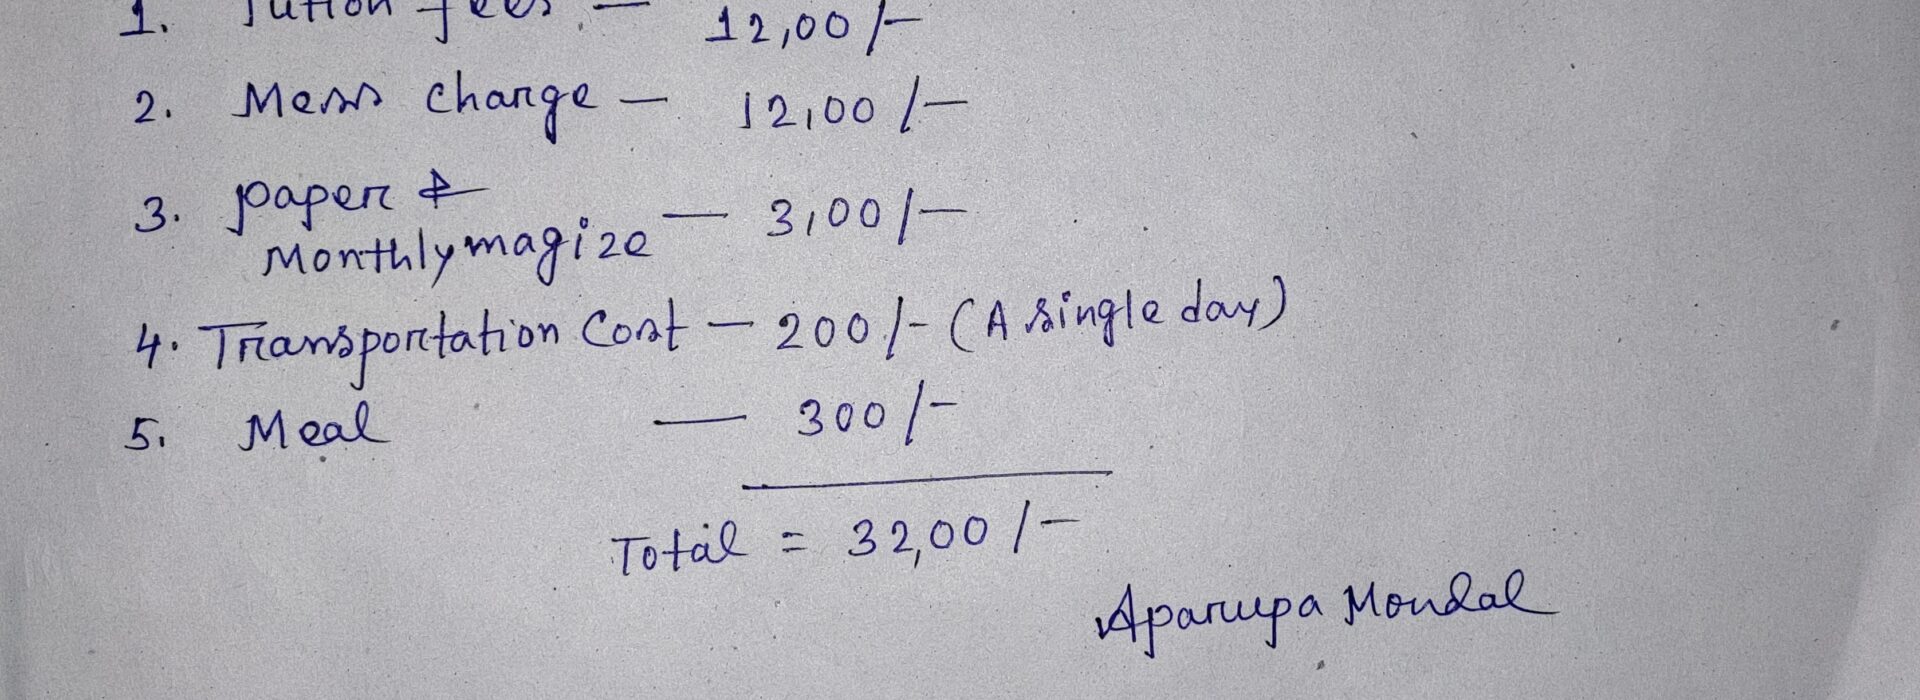 1. Tution fees — 12,00/-
2. Mess charge — 12,00/-
3. paper &
Monthly magize — 3,00/-
4. Transportation Cost — 200/- (A single day)
5. Meal — 300/-
Total = 32,00/-
Aparupa Mondal